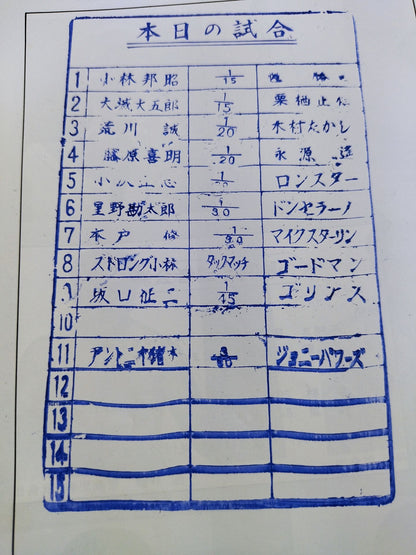 本日の試合
1 小林邦昭 1/15
2 大城大五郎 1/15 栗栖正伸
3 荒川 誠 1/20 木村たかし
4 藤原喜明 1/20 永源 遥
5 小沢正志 ロンスター
6 星野勘太郎 1/30 ドンセラーノ
7 木戸 修 1/30 マイクスターリン
8 ストロング小林 タッグマッチ ゴードマン
9 坂口征二 1/45 ゴリアス
10
11 アントニオ猪木 ジョニーパワーズ
12
13
14
15